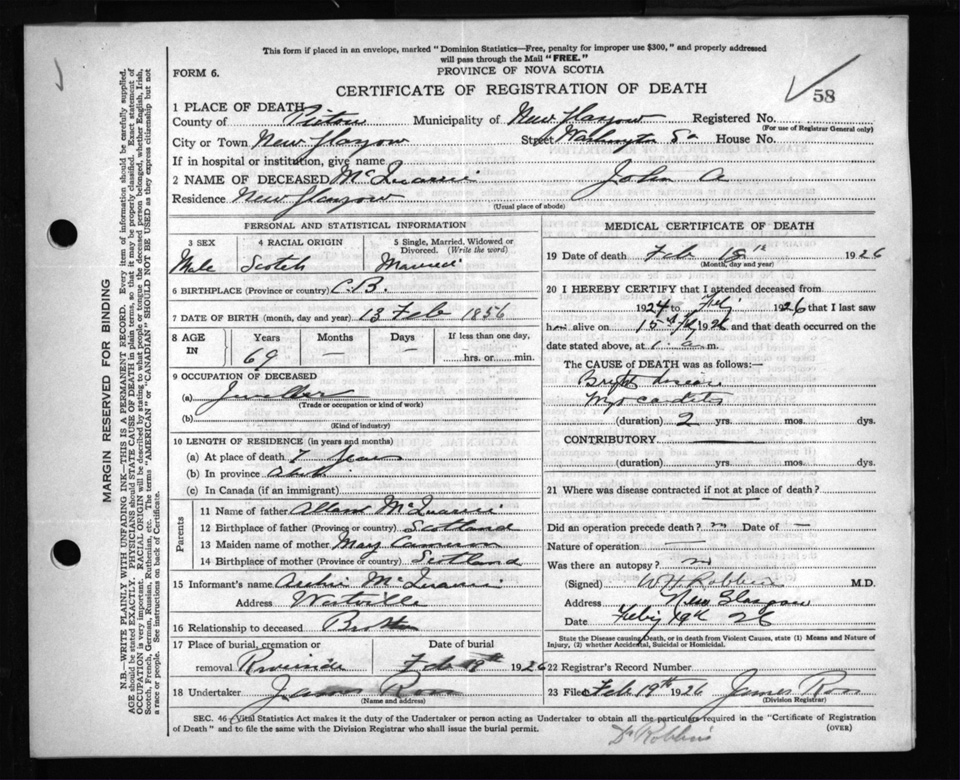 This form if placed in an envelope, marked "Dominion Statistics—Free, penalty for improper use $300," and properly addressed
will pass through the Mail "FREE."
FORM 6.
PROVINCE OF NOVA SCOTIA
CERTIFICATE OF REGISTRATION OF DEATH
58
1 PLACE OF DEATH
County of Pictou Municipality of New Glasgow Registered No.
(For use of Registrar General only)
City or Town New Glasgow Street Washington St House No.
If in hospital or institution, give name
2 NAME OF DECEASED McQuarrie John A
Residence New Glasgow
(Usual place of abode)
PERSONAL AND STATISTICAL INFORMATION
3 SEX 4 RACIAL ORIGIN 5 Single, Married, Widowed or Divorced. (Write the word)
Male Scotch Married
6 BIRTHPLACE (Province or country) C.B.
7 DATE OF BIRTH (month, day and year) 13 Feb 1856
8 AGE IN Years Months Days If less than one day,
69 — — hrs. or min.
9 OCCUPATION OF DECEASED
(a) Jweller
(Trade or occupation or kind of work)
(b)
(Kind of industry)
10 LENGTH OF RESIDENCE (in years and months)
(a) At place of death 7 years
(b) In province
(c) In Canada (if an immigrant)
Parents
11 Name of father McQuarrie
12 Birthplace of father (Province or country) Scotland
13 Maiden name of mother Mary Cameron
14 Birthplace of mother (Province or country) Scotland
15 Informant's name Archie McQuarrie
Address Westville
16 Relationship to deceased Brother
17 Place of burial, cremation or removal Riverside Date of burial Feb 19th 1926
18 Undertaker James Ross
(Name and address)
MEDICAL CERTIFICATE OF DEATH
19 Date of death Feb 18th 1926
(Month, day and year)
20 I HEREBY CERTIFY that I attended deceased from
1924 to Feby 1926 that I last saw
h alive on 15 Feby 1926 and that death occurred on
date stated above, at 1. a m.
The CAUSE OF DEATH was as follows:—
Brights disease
Myocarditis
(duration) 2 yrs. mos. dys.
CONTRIBUTORY
(duration) yrs. mos. dys.
21 Where was disease contracted if not at place of death?
Did an operation precede death? no Date of —
Nature of operation —
Was there an autopsy? no
(Signed) W H Robbins M.D.
Address New Glasgow
Date Feby 26
State the Disease causing Death, or in death from Violent Causes, state (1) Means and Nature of
Injury, (2) whether Accidental, Suicidal or Homicidal.
22 Registrar's Record Number
23 Filed Feb 19th 1926 James Ross
(Division Registrar)
SEC. 46—Vital Statistics Act makes it the duty of the Undertaker or person acting as Undertaker to obtain all the particulars required in the "Certificate of Registration
of Death" and to file the same with the Division Registrar who shall issue the burial permit.
(OVER)
Dr Robbins
MARGIN RESERVED FOR BINDING
N.B.—WRITE PLAINLY WITH UNFADING INK—THIS IS A PERMANENT RECORD. Every item of information should be carefully supplied.
AGE should be stated EXACTLY. PHYSICIANS should STATE CAUSE OF DEATH in plain terms, so that it may be properly classified. Exact statement of
OCCUPATION is very important. RACIAL ORIGIN will be described by stating to what people or tongue the deceased person belonged, whether English, Irish,
Scotch, French, German, Russian, Ruthenian, etc. The terms "AMERICAN" or "CANADIAN" SHOULD NOT BE USED as they express citizenship but not
a race or people. See instructions on back of Certificate.